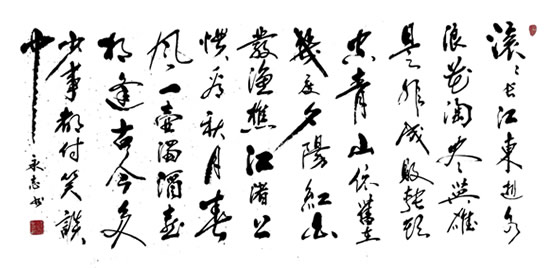 滚滚长江東逝水
浪花淘尽英雄
是非成敗轉頭
空青山依舊在
幾度夕陽紅白
發漁樵江渚上
惯看秋月春
風一壶濁酒喜
相逢古今多
少事都付笑談
中
永志书